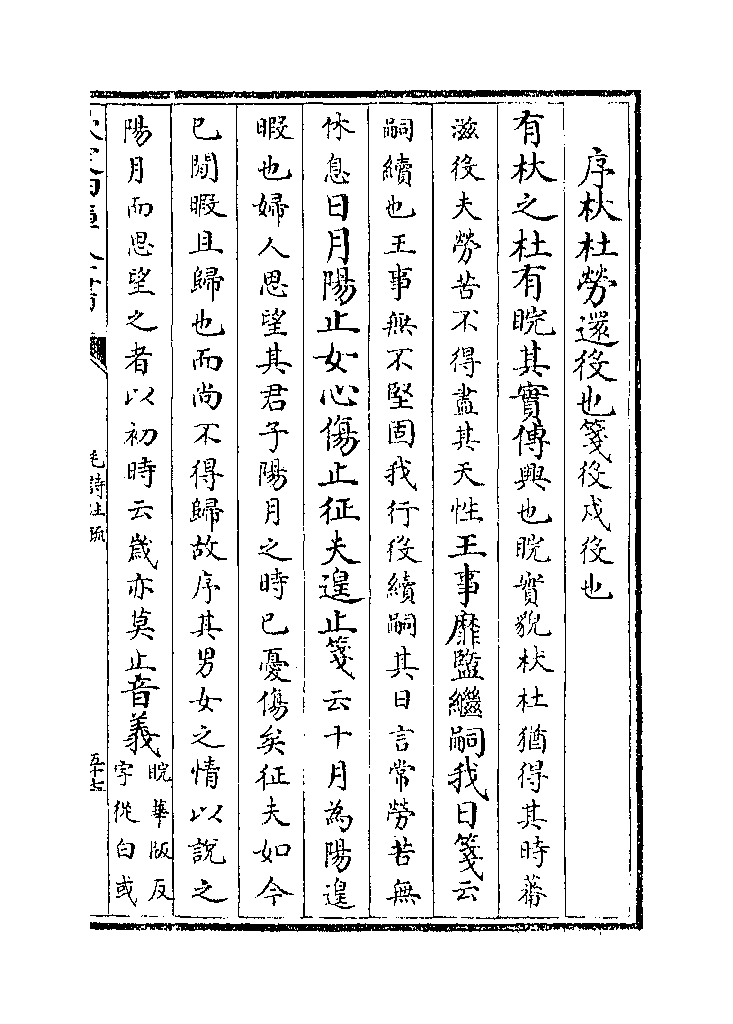 序杕杜勞還役也箋役戍役也
有杕之杜有睆其實傳興也睆實貌杕杜猶得其時蕃
滋役夫勞苦不得盡其天性王事靡盬繼嗣我日箋云
嗣續也王事無不堅固我行役續嗣其日言常勞苦無
休息日月陽止女心傷止征夫遑止箋云十月為陽遑
暇也婦人思望其君子陽月之時已憂傷矣征夫如今
已閒暇且歸也而尚不得歸故序其男女之情以說之
陽月而思望之者以初時云歲亦莫止音義睆華版反
字從白或
毛詩注疏